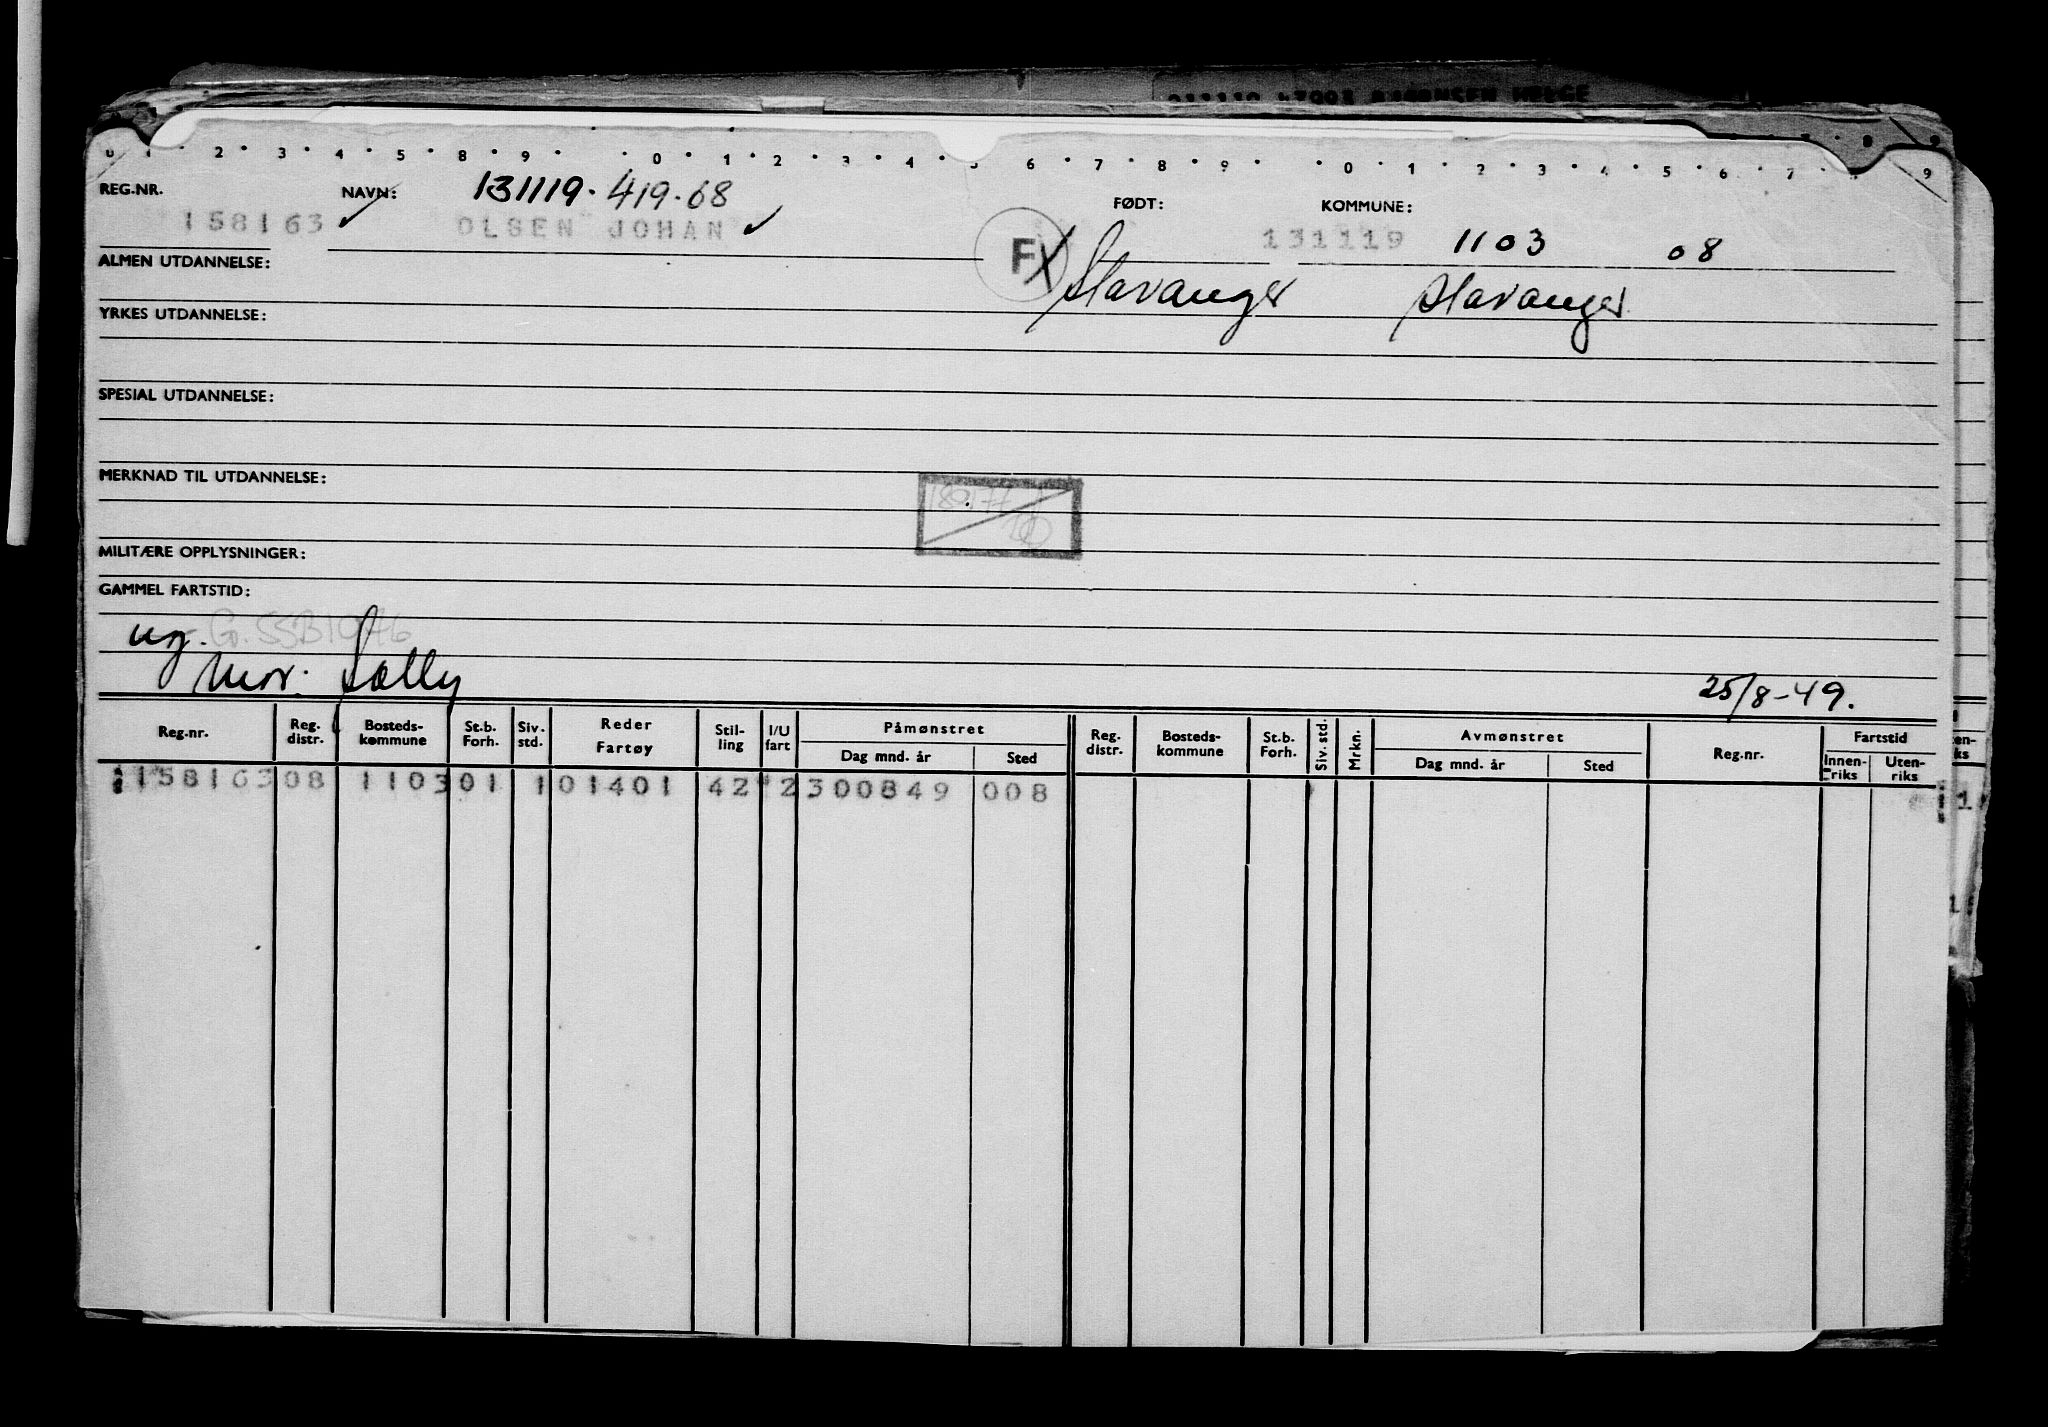 0 1 · 2 · 3 · 4 · 5 · 8 · 9 · · 0 · 1 · 2 · 3 · 4 · 5 6 · 7 · 8 · 9 · · 0 · 1 · 2 · 3 · 4 · 5 · 6 · 7 · 8 9
REG.NR. NAVN: 131119. 419.68 FØDT: KOMMUNE:
158163 ✓ OLSEN JOHAN ✓ FX 131119 1103 08
ALMEN UTDANNELSE: Stavanger Stavanger
YRKES UTDANNELSE:
SPESIAL UTDANNELSE:
MERKNAD TIL UTDANNELSE:
MILITÆRE OPPLYSNINGER:
GAMMEL FARTSTID:
ug. G. SSB1976
Mor: Sally 25/8-49.
Reg.nr. Reg. distr. Bosteds-kommune St.b. Forh. Siv. std. Reder Fartøy Stil-ling I/U fart Påmønstret Dag mnd. år Sted Reg. distr. Bosteds-kommune St.b. Forh. Siv. std. Mrkn. Avmønstret Dag mnd. år Sted Reg.nr. Fartstid Innen-riks Uten-riks
158163 08 1103 01 1 01401 42 2 300849 008